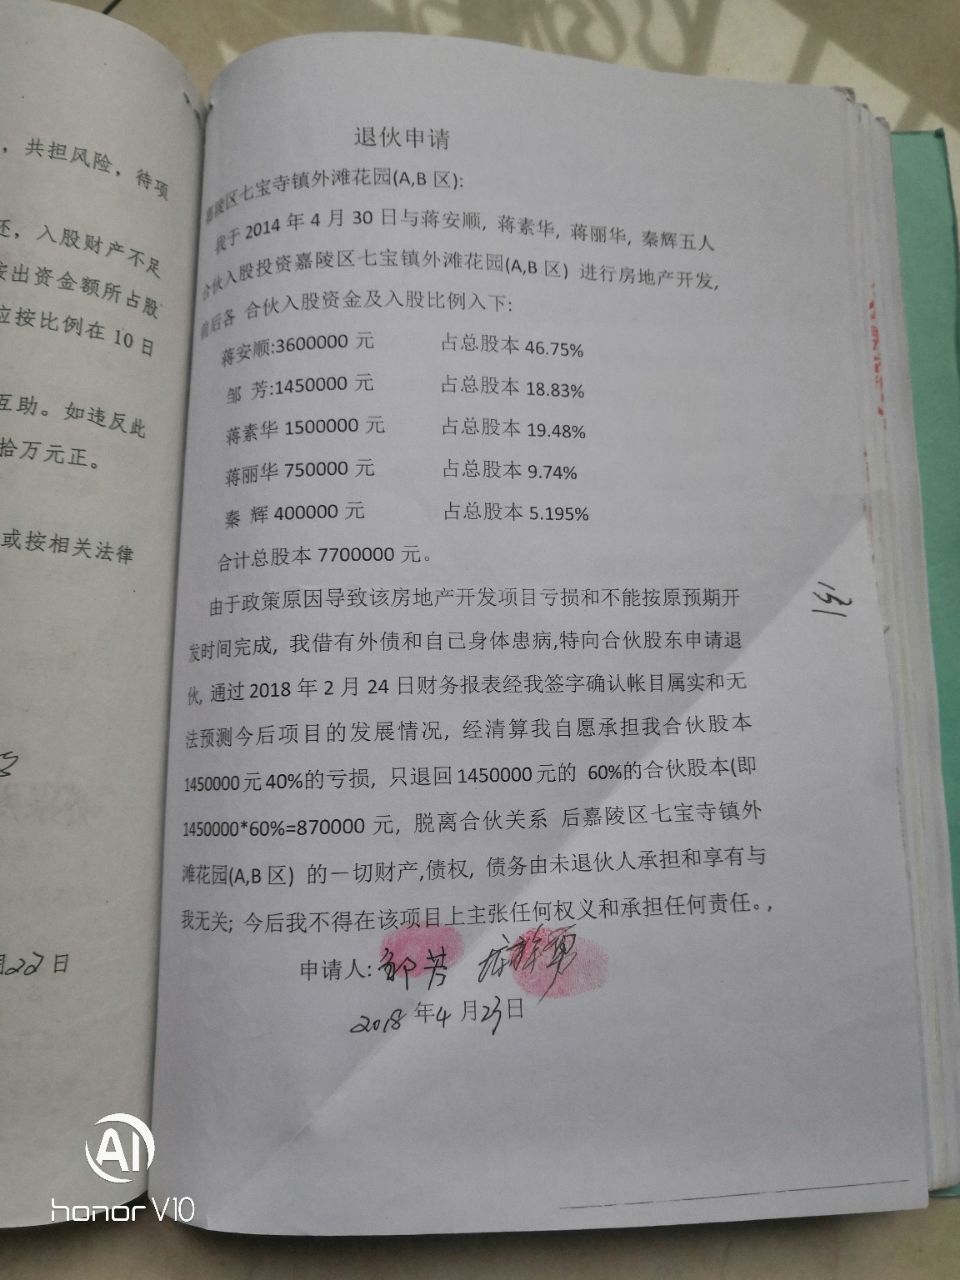 ，共担风险，待项
还，入股财产不足
按出资金额所占股
应按比例在 10 日
互助。如违反此
拾万元正。
或按相关法律
月22日
退伙申请
嘉陵区七宝寺镇外滩花园(A,B 区):
我于 2014 年 4 月 30 日与蒋安顺, 蒋素华, 蒋丽华, 秦辉五人
合伙入股投资嘉陵区七宝镇外滩花园(A,B 区) 进行房地产开发,
前后各 合伙入股资金及入股比例入下:
蒋安顺:3600000 元 占总股本 46.75%
邹 芳:1450000 元 占总股本 18.83%
蒋素华 1500000 元 占总股本 19.48%
蒋丽华 750000 元 占总股本 9.74%
秦 辉 400000 元 占总股本 5.195%
合计总股本 7700000 元。
由于政策原因导致该房地产开发项目亏损和不能按原预期开
发时间完成, 我借有外债和自己身体患病,特向合伙股东申请退
伙, 通过 2018 年 2 月 24 日财务报表经我签字确认帐目属实和无
法预测今后项目的发展情况, 经清算我自愿承担我合伙股本
1450000 元 40%的亏损, 只退回 1450000 元的 60%的合伙股本(即
1450000*60%=870000 元, 脱离合伙关系 后嘉陵区七宝寺镇外
滩花园(A,B 区) 的一切财产,债权, 债务由未退伙人承担和享有与
我无关; 今后我不得在该项目上主张任何权义和承担任何责任。,
申请人: 邹芳
2018 年 4 月 23 日
131
AI
honor V10